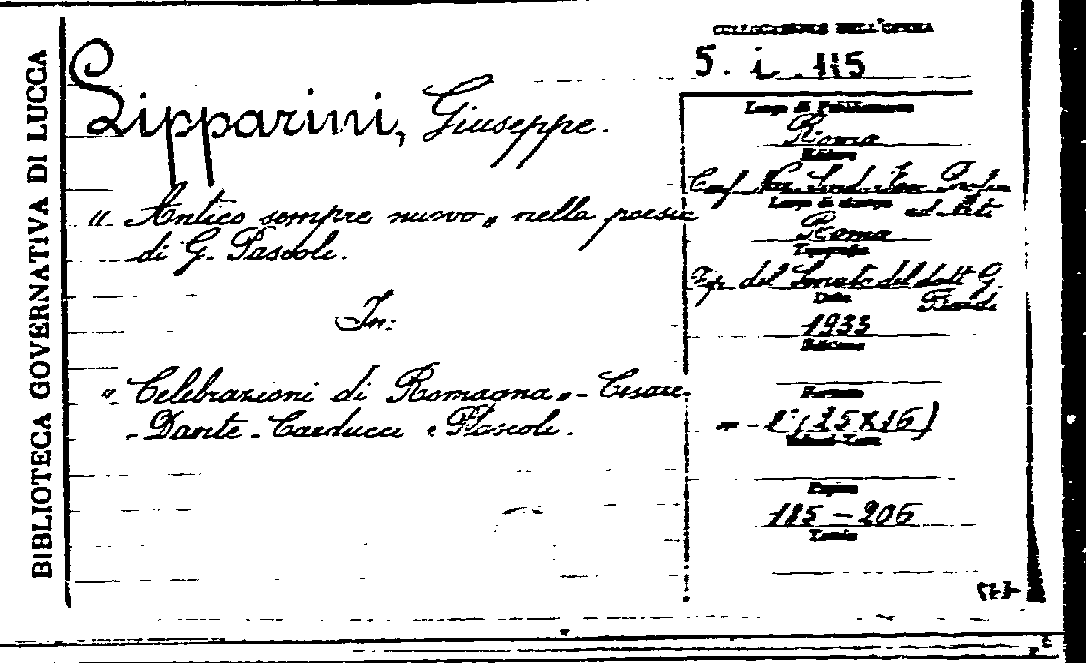 BIBLIOTECA GOVERNATIVA DI LUCCA
COLLOCAZIONE DELL'OPERA
5. i. 115
Lipparini, Giuseppe.
" Antico sempre nuovo " nella poesia
di G. Pascoli.
In:
" Celebrazioni di Romagna " - Cesare -
- Dante - Carducci e Pascoli.
Luogo di Pubblicazione
Roma
Editore
Conf. Naz. Sind. Fasc. Profess.
ed Arti
Luogo di stampa
Roma
Tipografia
Tip. del Senato del dott G.
Bardi
Data
1933
Edizione
Formato
(25x16)
Pagine
185 - 206
Tavole